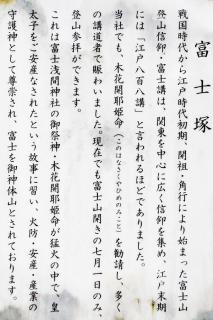 富士塚
戦国時代から江戸時代初期、開祖・角行により始まった富士山
登山信仰・富士講は、関東を中心に広く信仰を集め、江戸末期
には「江戸八百八講」と言われるほどでありました。
当社でも、木花開耶姫命(このはなさくやひめのみこと)を勧請し、多く
の講道者で賑わいました。現在でも富士山開きの七月一日のみ、
登山参拝ができます。
これは富士浅間神社の御祭神・木花開耶姫命が猛火の中で、皇
太子をご安産なされたという故事に習い、火防・安産・産業の
守護神として尊崇され、富士を御神体山とされております。